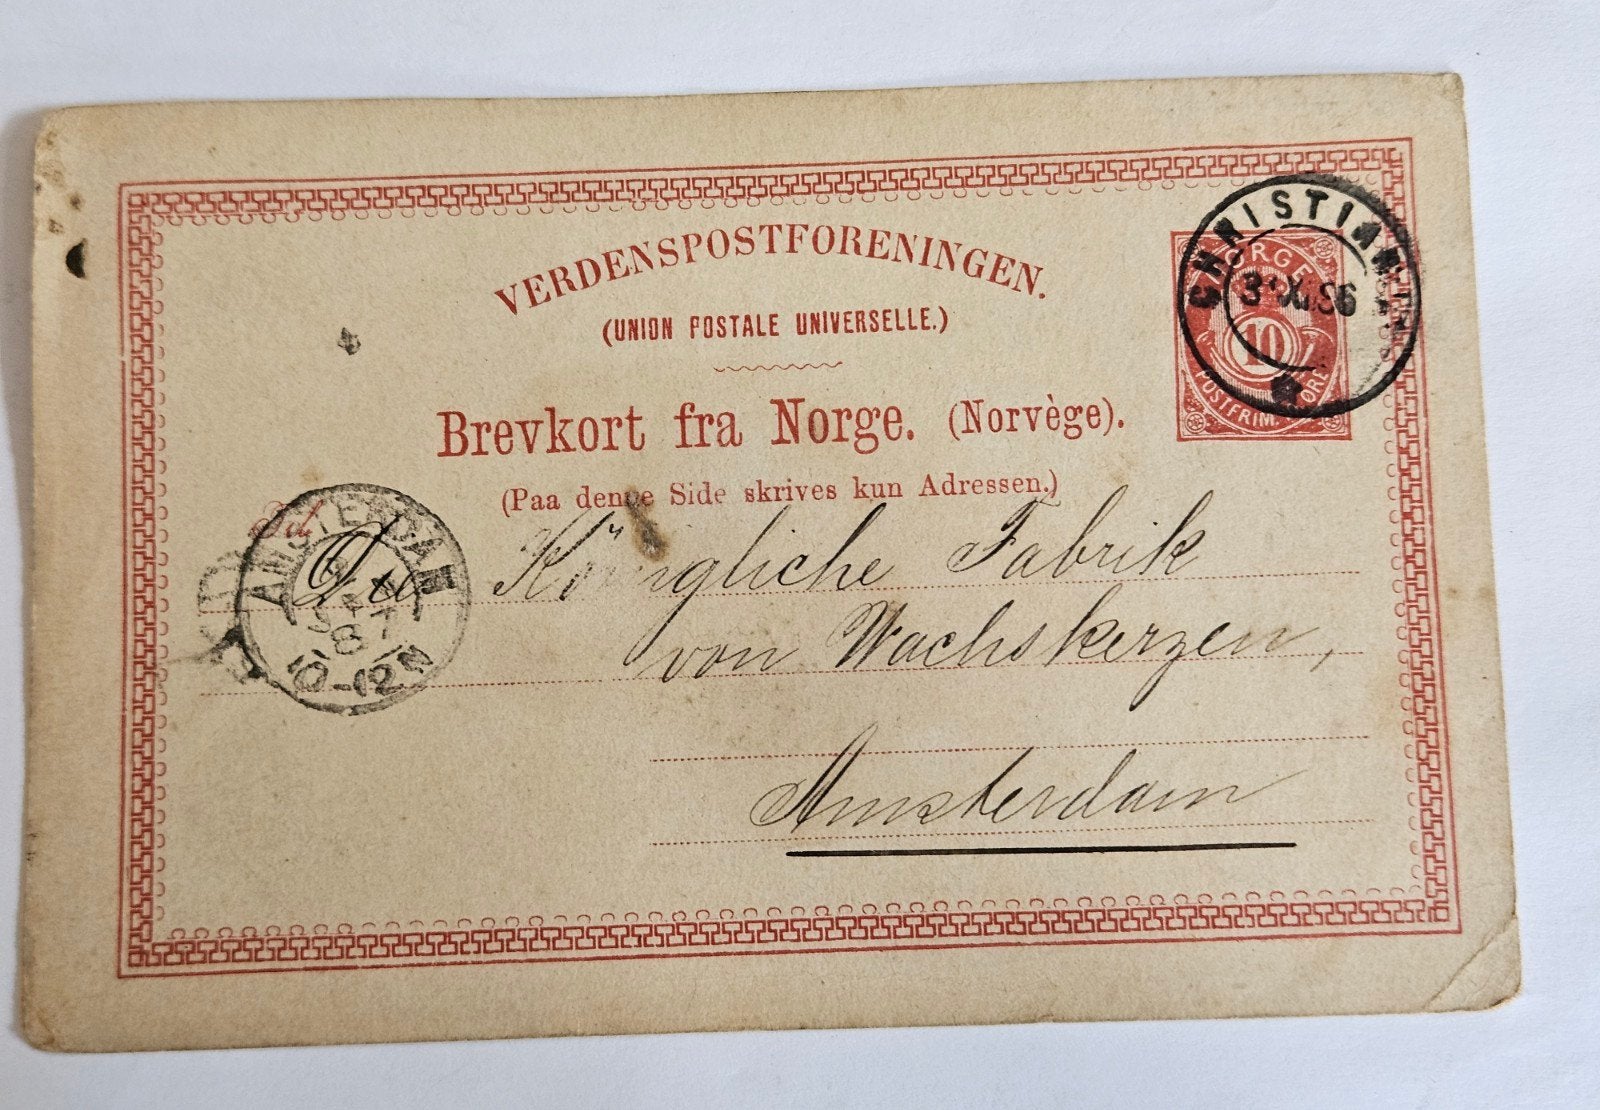 VERDENSPOSTFORENINGEN.
(UNION POSTALE UNIVERSELLE.)
Brevkort fra Norge. (Norvège).
(Paa denne Side skrives kun Adressen.)
NORGE
10
POSTFRIM. ØRE
CHRISTIANIA
86
Til
Die Königliche Fabrik
von Wachskerzen,
Amsterdam
AMSTERDAM
JAN
87
10-12N